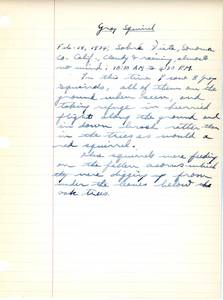 Gray Squirrel
Feb. 18, 1934; Sobre Vista, Sonoma
Co. Calif., Cloudy & raining, almost
no wind; 10:30 AM to 4:00 P.M.
In this time I saw 8 gray
squirrels, all of them on the
ground when seen, and
taking refuge in hurried
flight along the ground and
in down brush rather than
in the trees as would a
red squirrel.
The squirrels were feeding
on the fallen acorns which
they were digging up from
under the leaves below the
oak trees.